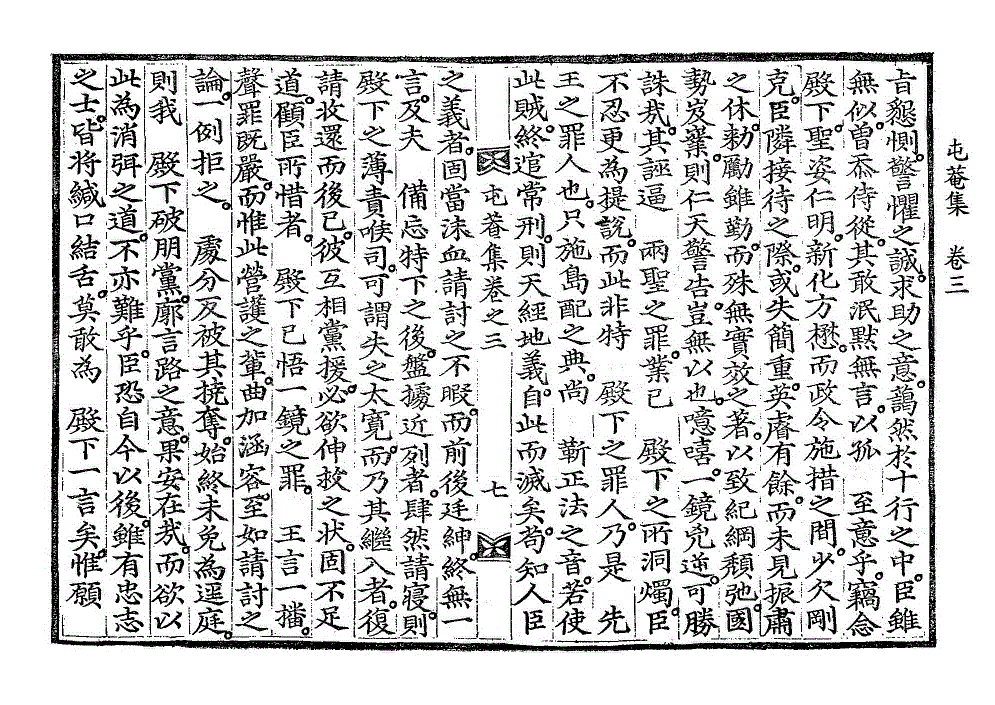 屯菴集 卷三
旨懇惻。警懼之誠。求助之意。藹然於十行之中。臣雖
無似。曾忝侍從。其敢泯默無言。以孤 至意乎。竊念
殿下聖姿仁明。新化方懋。而政令施措之間。少欠剛
克。臣隣接待之際。或失簡重。英睿有餘。而未見振肅
之休。勑勵雖勤。而殊無實效之著。以致紀綱頹弛。國
勢岌嶪。則仁天警告。豈無以也。噫嘻。一鏡兇逆。可勝
誅哉。其誣逼 兩聖之罪。業已 殿下之所洞燭。臣
不忍更爲提說。而此非特 殿下之罪人。乃是 先
王之罪人也。只施島配之典。尙 靳正法之音。若使
此賊。終逭常刑。則天經地義。自此而滅矣。苟知人臣
屯菴集卷之三 七
之義者。固當沬血請討之不暇。而前後廷紳。終無一
言。及夫 備忘特下之後。盤據近列者。肆然請寢。則
殿下之薄責喉司。可謂失之太寬。而乃其繼入者。復
請收還而後已。彼互相黨援。必欲伸救之狀。固不足
道。顧臣所惜者。 殿下已悟一鏡之罪。 王言一播。
聲罪旣嚴。而惟此營護之輩。曲加涵容。至如請討之
論。一例拒之。 處分反被其撓奪。始終未免爲逕庭。
則我 殿下破朋黨。廓言路之意。果安在哉。而欲以
此爲消弭之道。不亦難乎。臣恐自今以後。雖有忠志
之士。皆將緘口結舌。莫敢爲 殿下一言矣。惟願